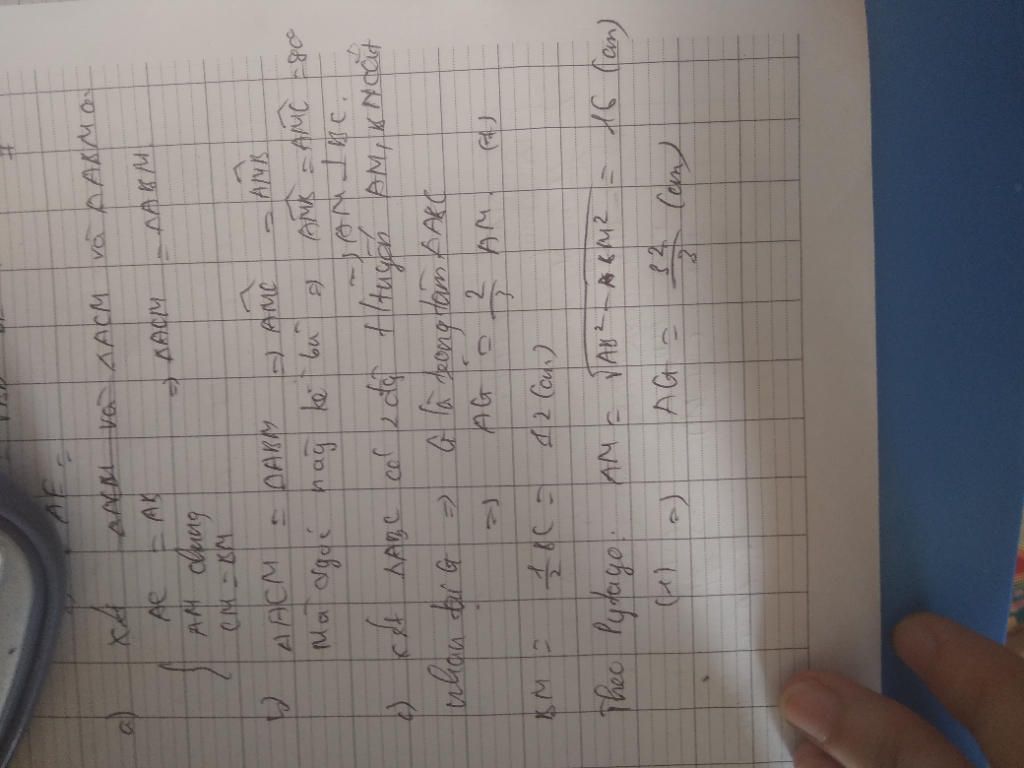 AF =
a) Xét ΔABM và ΔACM và ΔABM có
AC = AB
AM chung ⇒ ΔACM = ΔABM
CM = BM
b) ΔACM = ΔABM ⇒ AMC = AMB
Mà 2 góc này kề bù ⇒ AMB = AMC = 90°
⇒ AM ⊥ BC.
c) Xét ΔABC có 2 đg Ttuyến AM, BN cắt
nhau tại G ⇒ G là trọng tâm ΔABC
⇒ AG = 2/3 AM. (1)
BM = 1/2 BC = 12 (cm)
Theo Pytago: AM = √AB² - BM² = 16 (cm)
(1) ⇒ AG = 32/3 (cm)